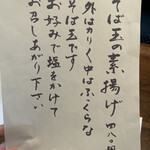 そば玉の素揚げ 四八〇円
外はカリく中はふっくらな
そば玉です
お好みで塩をかけて
お召しあがり下さい